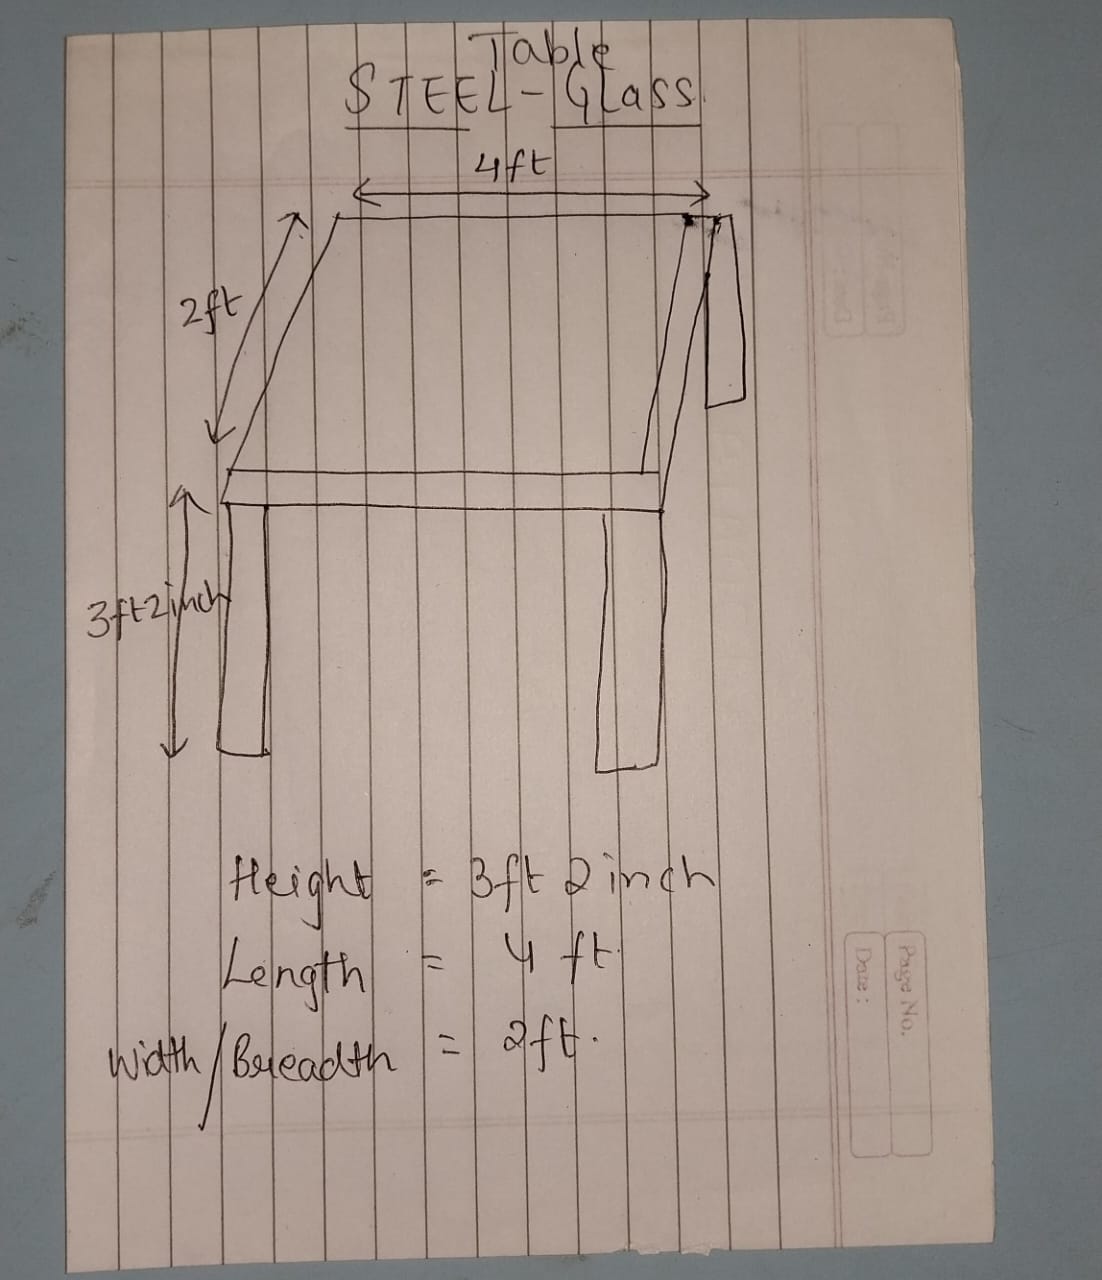 Table
STEEL-GLass
4ft
2ft
3ft2inch
Height = 3ft 2 inch
Length = 4 ft.
Width/Breadth = 2ft.
Page No.
Date: